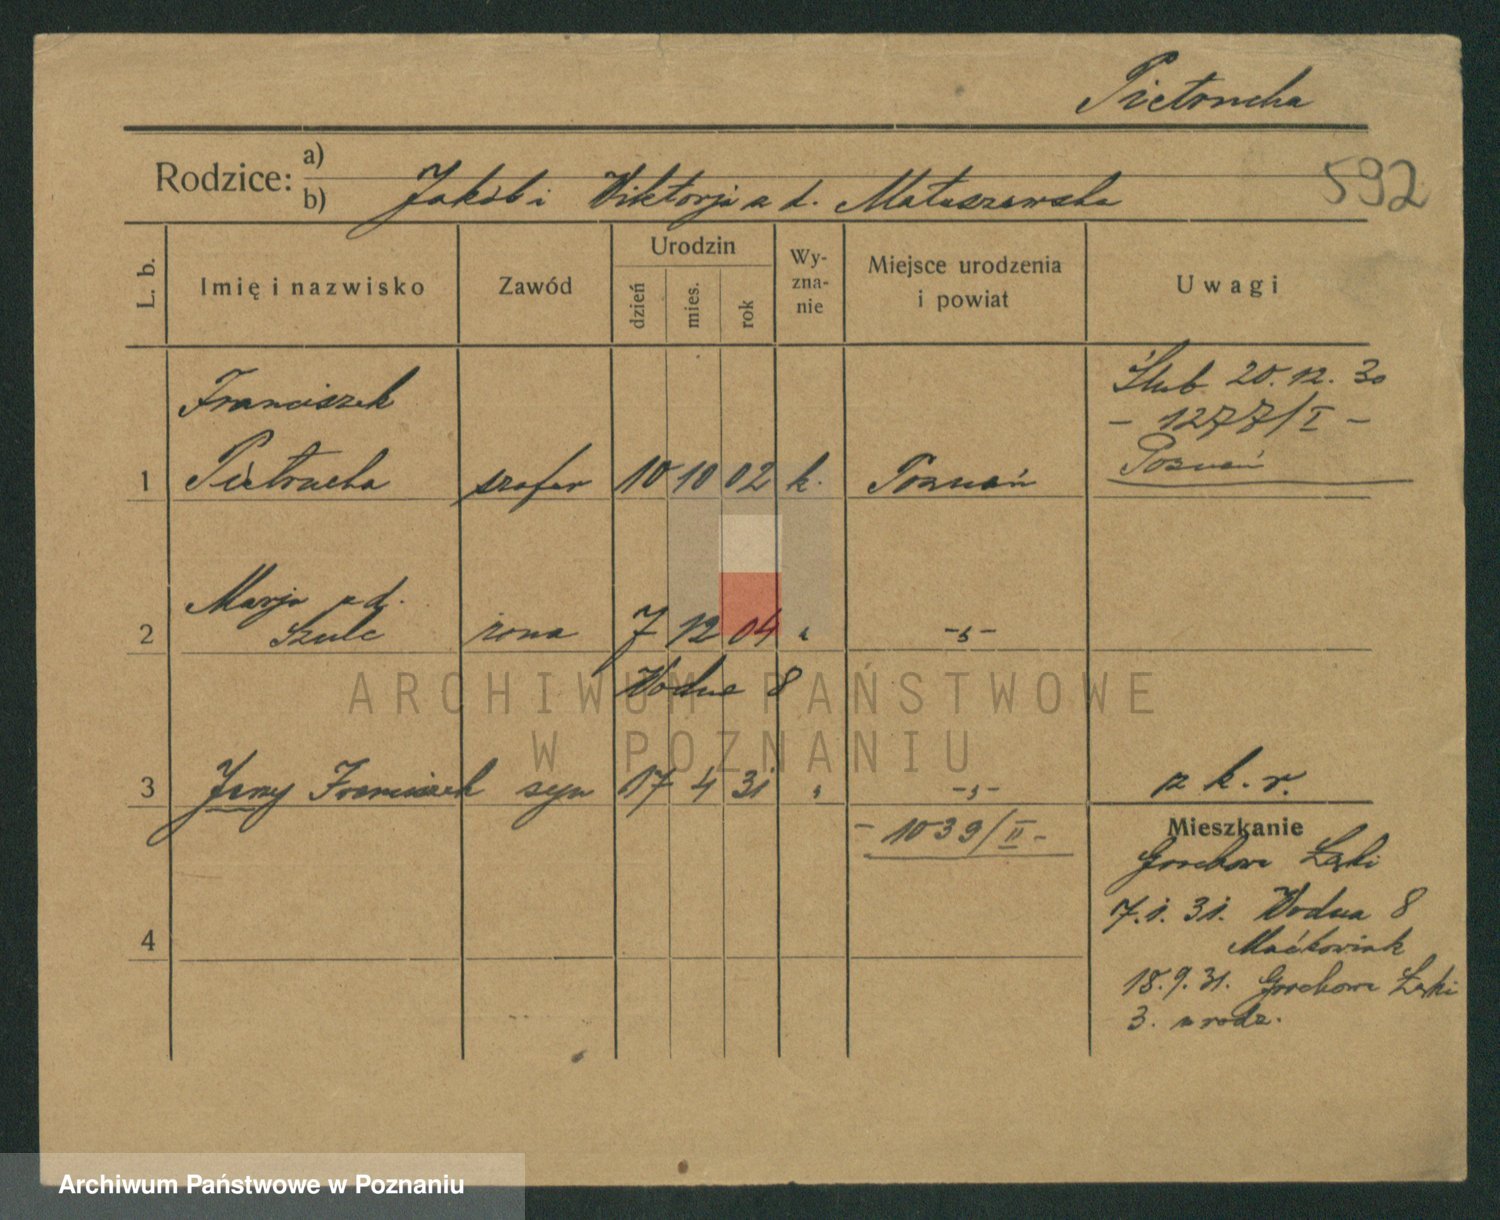 Pietrucha
592
Rodzice: a)
b) Jakób i Wiktorja z d. Matuszewska
L. b.
Imię i nazwisko
Zawód
Urodzin
dzień
mies.
rok
Wy-
zna-
nie
Miejsce urodzenia
i powiat
Uwagi
Franciszek
1 Pietrucha szofer 10 10 02 k. Poznań
Ślub 20.12.30
- 1277/I -
Poznań
Marja z d.
2 Szulc żona 7 12 04 " -"-
Wodna 8
3 Jerzy Franciszek syn 17 4 31 " -"- z k. r.
- 1039/II -
4
Mieszkanie
Grochowe Łąki
7.1.31. Wodna 8
Maćkowiak
18.9.31. Grochowe Łąki
3. u rodz.
ARCHIWUM PAŃSTWOWE
W POZNANIU
Archiwum Państwowe w Poznaniu